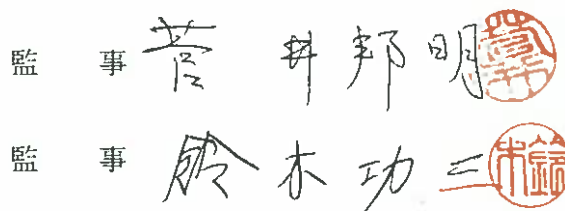 監　事 菅井邦明
監　事 鈴木功二